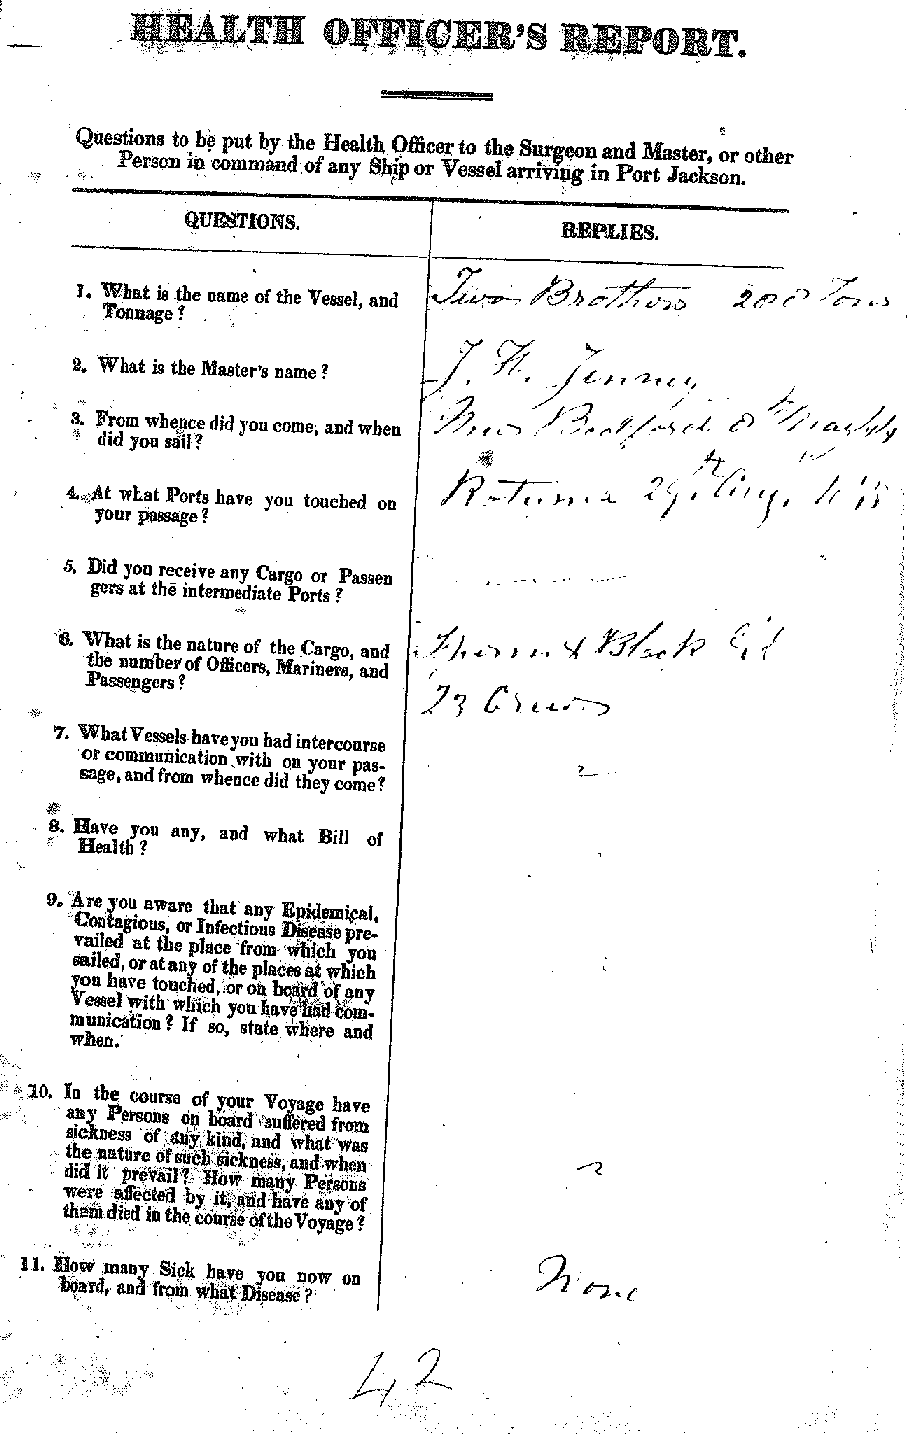 HEALTH OFFICER'S REPORT.
Questions to be put by the Health Officer to the Surgeon and Master, or other
Person in command of any Ship or Vessel arriving in Port Jackson.
QUESTIONS.
REPLIES.
1. What is the name of the Vessel, and
Tonnage?
Two Brothers 200 Tons
2. What is the Master's name?
J. H. Jenney
3. From whence did you come, and when
did you sail?
New Bedford 8th
4. At what Ports have you touched on
your passage?
Rotuma 29th Aug.
5. Did you receive any Cargo or Passen
gers at the intermediate Ports?
6. What is the nature of the Cargo, and
the number of Officers, Mariners, and
Passengers?
Sperm & Black Oil
23 Crew
7. What Vessels have you had intercourse
or communication with on your pas-
sage, and from whence did they come?
8. Have you any, and what Bill of
Health?
9. Are you aware that any Epidemical,
Contagious, or Infectious Disease pre-
vailed at the place from which you
sailed, or at any of the places at which
you have touched, or on board of any
Vessel with which you have had com-
munication? If so, state where and
when.
10. In the course of your Voyage have
any Persons on board suffered from
sickness of any kind, and what was
the nature of such sickness, and when
did it prevail? How many Persons
were affected by it, and have any of
them died in the course of the Voyage?
11. How many Sick have you now on
board, and from what Disease?
None
42